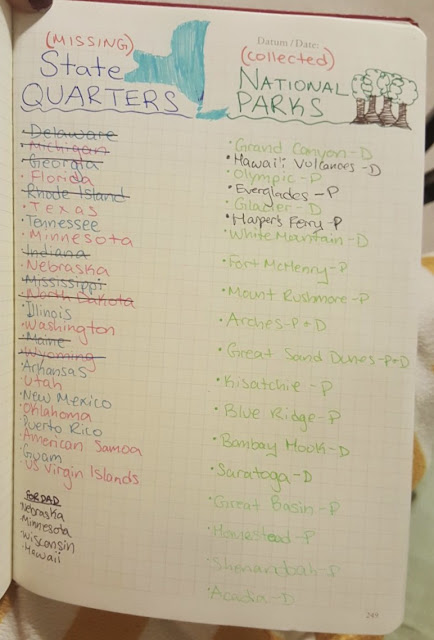 (MISSING)
State
QUARTERS
Delaware
Michigan
Georgia
Florida
Rhode Island
Texas
Tennessee
Minnesota
Indiana
Nebraska
Mississippi
North Dakota
Illinois
Washington
Maine
Wyoming
Arkansas
Utah
New Mexico
Oklahoma
Puerto Rico
American Samoa
Guam
US Virgin Islands
FOR DAD
Nebraska
Minnesota
Wisconsin
Hawaii
Datum / Date:
(collected)
NATIONAL
PARKS
Grand Canyon - D
Hawai'i Volcanoes - D
Olympic - P
Everglades - P
Glacier - D
Harpers Ferry - P
White Mountain - D
Fort McHenry - P
Mount Rushmore - P
Arches - P + D
Great Sand Dunes - P+D
Kisatchie - P
Blue Ridge - P
Bombay Hook - D
Saratoga - D
Great Basin - P
Homestead - P
Shenandoah - P
Acadia - D
249